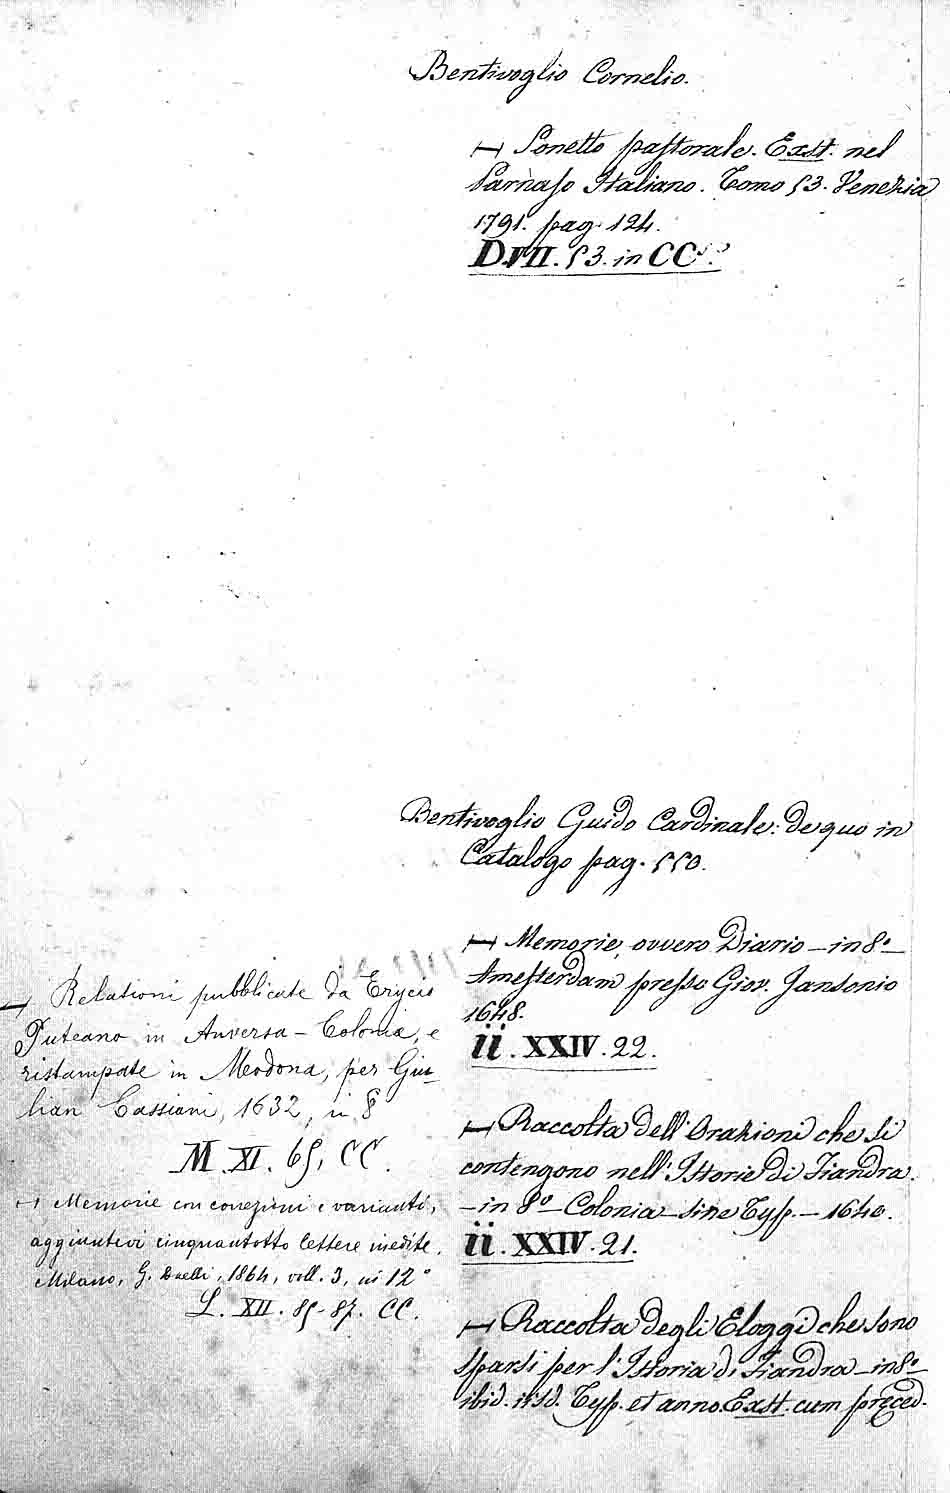 Bentivoglio Cornelio.
⊢⊣ Sonetto pastorale. Exst. nel
Parnaso Italiano. Tomo 53. Venezia
1791. pag. 124.
D.VII. 53. in CC
Bentivoglio Guido Cardinale: de quo in
Catalogo pag. 550.
⊢⊣ Memorie, ovvero Diario – in 8º –
Amesterdam presso Giov. Jansonio
1648.
ii. XXIV. 22.
⊢⊣ Raccolta dell' Orazioni che si
contengono nell' Istorie di Fiandra.
– in 8º – Colonia – sine Typ. – 1640.
ii. XXIV. 21.
⊢⊣ Raccolta degli Eloggi che sono
sparsi per l' Istoria di Fiandra – in 8º –
ibid. iisd. Typ. et anno. Exst. cum præced.
⊢⊣ Relationi pubblicate da Erycio
Puteano in Anversa – Colonia, e
ristampate in Modona, per Giu-
lian Cassiani, 1632, in 8
M. XI. 65, CC.
⊢⊣ Memorie con correzioni e varianti,
aggiuntevi cinquantotto lettere inedite.
Milano, G. Daelli, 1864, voll. 3, in 12º
L. XII. 85-87. CC.